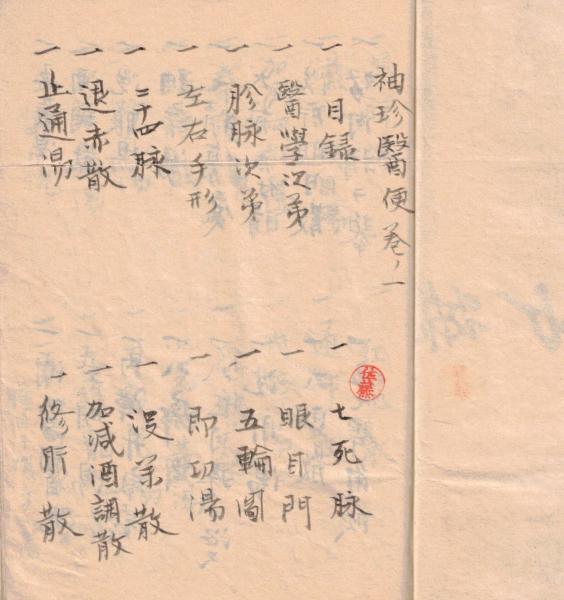 袖珍醫便卷ノ一
一 目録
一 七死脉
一 醫學次第
一 眼目門
一 胗脉次第
一 五輪圖
一 左右手形
一 即功湯
一 二十四脉
一 没薬散
一 退赤散
一 加減酒調散
一 止通湯
一 修肝散
佐藤